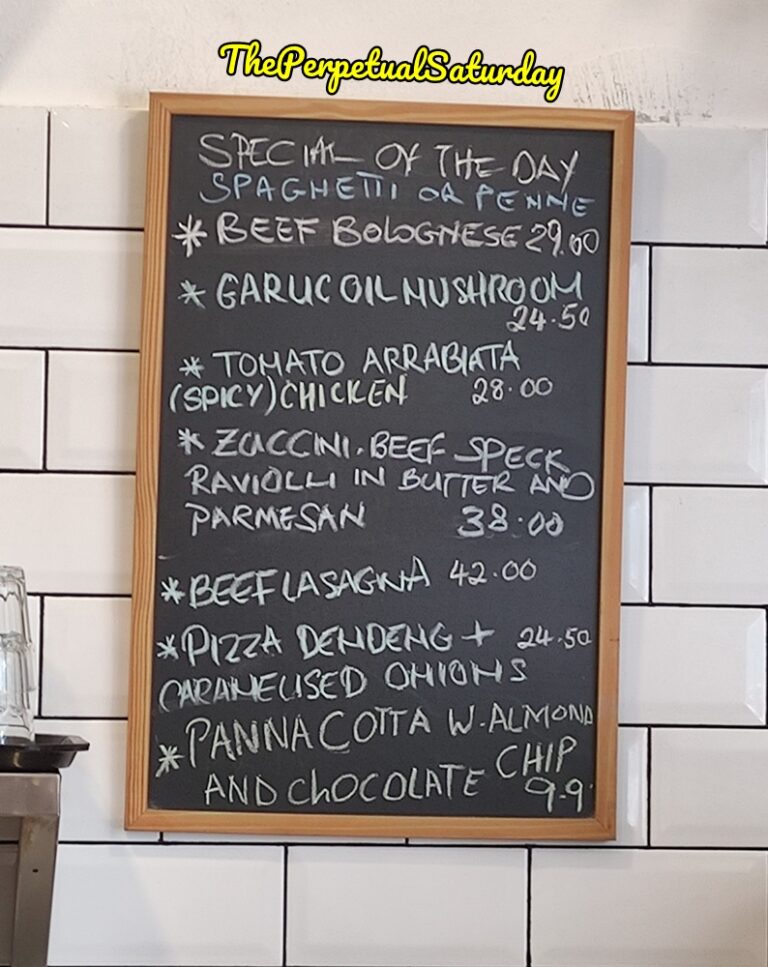 ThePerpetualSaturday
SPECIAL OF THE DAY
SPAGHETTI OR PENNE
* BEEF BOLOGNESE 29.00
* GARLIC OIL MUSHROOM
24.50
* TOMATO ARRABIATA
(SPICY) CHICKEN 28.00
* ZUCCINI. BEEF SPECK
RAVIOLLI IN BUTTER AND
PARMESAN 38.00
* BEEF LASAGNA 42.00
* PIZZA DENDENG + 24.50
CARAMELISED ONIONS
* PANNA COTTA W. ALMOND
CHIP
AND CHOCOLATE 9.9